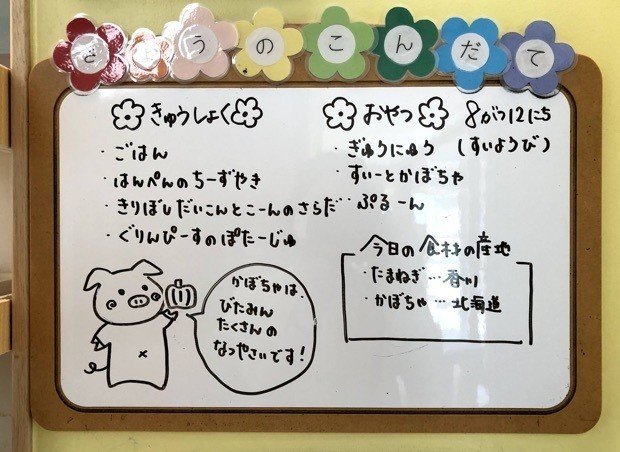 きょうのこんだて
きゅうしょく
・ごはん
・はんぺんのちーずやき
・きりぼしだいこんとこーんのさらだ
・ぐりんぴーすのぽたーじゅ
おやつ
8がつ12にち
(すいようび)
・ぎゅうにゅう
・すいーとかぼちゃ
・ぷるーん
今日の食材の産地
・たまねぎ…香川
・かぼちゃ…北海道
かぼちゃは、
びたみん
たくさんの
なつやさいです!